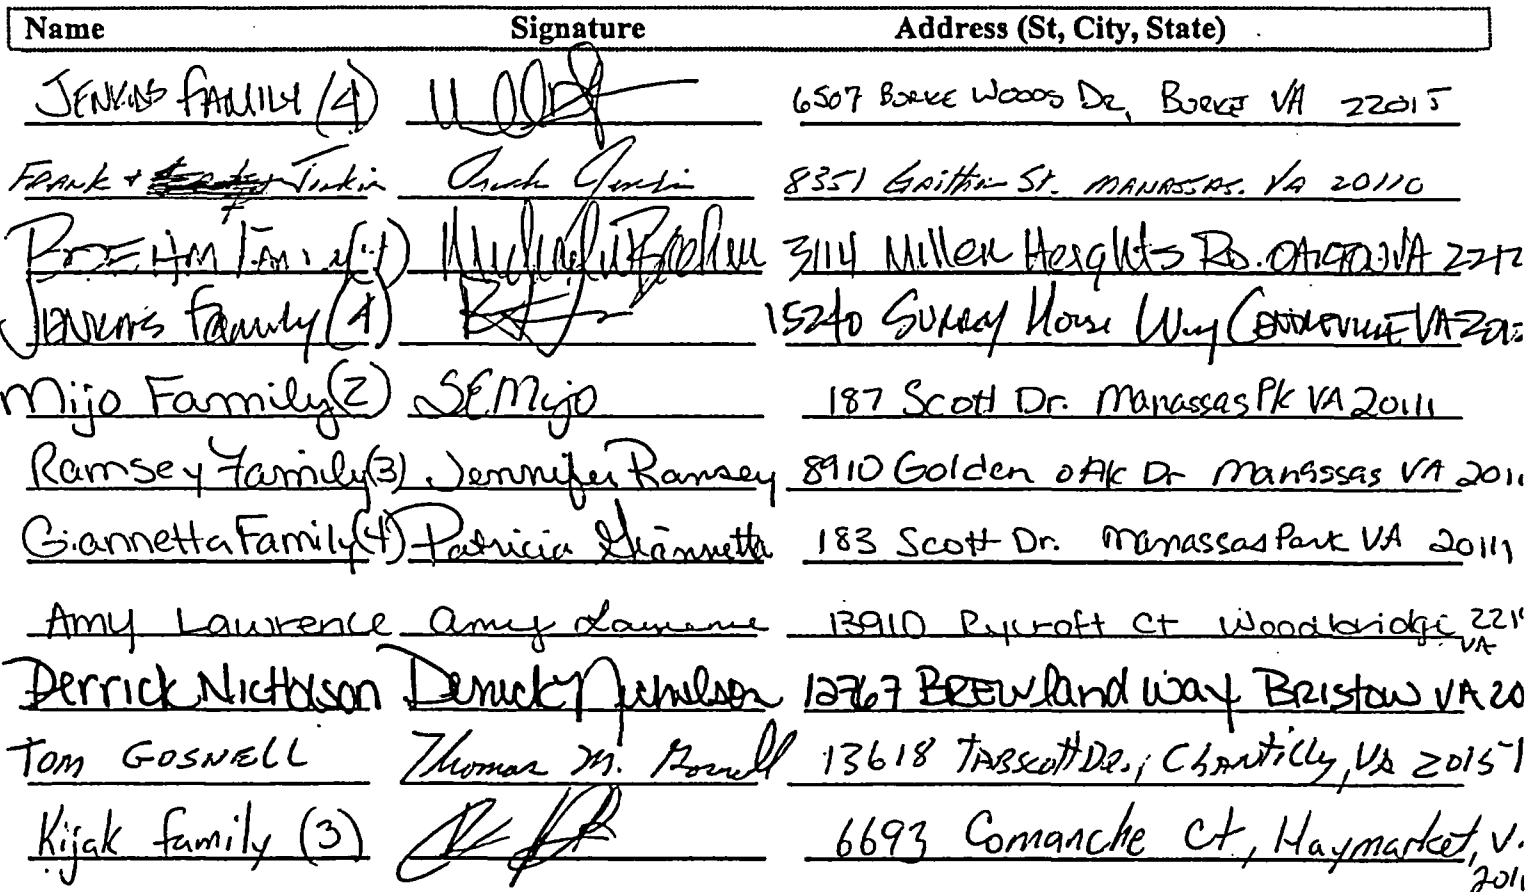 Name Signature Address (St, City, State)
JENKINS FAMILY (4) 6507 BURKE WOODS DR, BURKE VA 22015
FRANK + Junkin 8351 Griffin St. MANASSAS. VA 20110
BOEHM Family (4) 3114 Miller Heights RD. OAKTON VA
JENKINS Family (4) 15240 SURREY House Way CENTREVILLE VA
Mijo Family (2) SEMijo 187 Scott Dr. Manassas Pk VA 20111
Ramsey Family (3) Jennifer Ramsey 8910 Golden OAK Dr Manasssas VA 2011
Giannetta Family (4) Patricia Giannetta 183 Scott Dr. Manassas Park VA 20111
Amy Lawrence Amy Lawrence 13910 Rycroft Ct Woodbridge 221
VA
Derrick Nicholson Derrick Nicholson 12767 BREWland Way BRISTOW VA 20
TOM GOSNELL Thomas M. Gosnell 13618 TABSCOTT DR., CHANTILLY, VA 20151
Kijak family (3) 6693 Comanche Ct, Haymarket, V
201